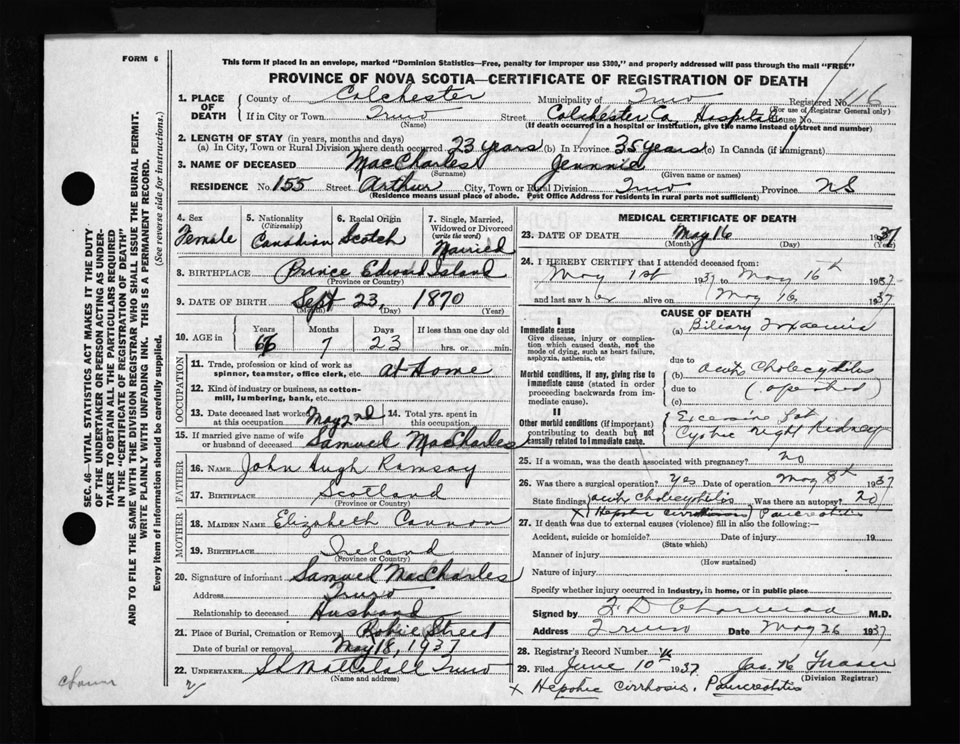 FORM 6
This form if placed in an envelope, marked "Dominion Statistics—Free, penalty for improper use $300," and properly addressed will pass through the mail "FREE"
PROVINCE OF NOVA SCOTIA—CERTIFICATE OF REGISTRATION OF DEATH
1. PLACE OF DEATH County of Colchester Municipality of Truro Registered No. 116
(For use of Registrar General only)
If in City or Town Truro Street Colchester Co. Hospital House No.
(Name) (If death occurred in a hospital or institution, give the name instead of street and number)
2. LENGTH OF STAY (in years, months and days)
(a) In City, Town or Rural Division where death occurred 23 years (b) In Province 35 years (c) In Canada (if immigrant)
3. NAME OF DECEASED MacCharles Jennnie
(Surname) (Given name or names)
RESIDENCE No. 155 Street Arthur City, Town or Rural Division Truro Province NS
(Residence means usual place of abode. Post Office Address for residents in rural parts not sufficient)
4. Sex Female
5. Nationality (Citizenship) Canadian
6. Racial Origin Scotch
7. Single, Married, Widowed or Divorced (write the word) Married
8. BIRTHPLACE Prince Edward Island
(Province or Country)
9. DATE OF BIRTH Sept 23, 1870
(Month) (Day) (Year)
10. AGE in Years 66 Months 7 Days 23 If less than one day old hrs. or min.
OCCUPATION
11. Trade, profession or kind of work as spinner, teamster, office clerk, etc. at Home
12. Kind of industry or business, as cotton-mill, lumbering, bank, etc.
13. Date deceased last worked at this occupation May 2nd
14. Total yrs. spent in this occupation
15. If married give name of wife or husband of deceased Samuel MacCharles
FATHER
16. NAME John Hugh Ramsay
17. BIRTHPLACE Scotland
(Province or Country)
MOTHER
18. MAIDEN NAME Elizabeth Cannon
19. BIRTHPLACE Ireland
(Province or Country)
20. Signature of informant Samuel MacCharles
Address Truro
Relationship to deceased Husband
21. Place of Burial, Cremation or Removal Robie Street
Date of burial or removal May 18, 1937
22. UNDERTAKER Truro
(Name and address)
MEDICAL CERTIFICATE OF DEATH
23. DATE OF DEATH May 16 1937
(Month) (Day) (Year)
24. I HEREBY CERTIFY that I attended deceased from:
May 1st 1937 to May 16th 1937
and last saw her alive on May 16, 1937
CAUSE OF DEATH
I
Immediate cause
Give disease, injury or complication which caused death, not the mode of dying, such as heart failure, asphyxia, asthenia, etc
(a) Biliary Toxaemia
due to
Morbid conditions, if any, giving rise to immediate cause (stated in order proceeding backwards from immediate cause).
(b) acute Cholecystitis
due to (operated)
(c)
II
Other morbid conditions (if important) contributing to death but not causally related to immediate cause.
Excessive fat
Cystic right kidney
25. If a woman, was the death associated with pregnancy? no
26. Was there a surgical operation? Yes Date of operation May 8th 1937
State findings acute cholecystitis Was there an autopsy? no
x Hepatic cirrhosis Pancreatitis
27. If death was due to external causes (violence) fill in also the following:—
Accident, suicide or homicide? Date of injury 19
(State which)
Manner of injury
(How sustained)
Nature of injury
Specify whether injury occurred in industry, in home, or in public place
Signed by M.D.
Address Truro Date May 26 1937
28. Registrar's Record Number
29. Filed June 10th 1937 Jas. H. Fraser
(Division Registrar)
x Hepatic cirrhosis. Pancreatitis
SEC. 46—VITAL STATISTICS ACT MAKES IT THE DUTY
OF THE UNDERTAKER OR PERSON ACTING AS UNDER-
TAKER TO OBTAIN ALL THE PARTICULARS REQUIRED
IN THE "CERTIFICATE OF REGISTRATION OF DEATH"
AND TO FILE THE SAME WITH THE DIVISION REGISTRAR WHO SHALL ISSUE THE BURIAL PERMIT.
WRITE PLAINLY WITH UNFADING INK. THIS IS A PERMANENT RECORD.
Every item of information should be carefully supplied. (See reverse side for instructions.)